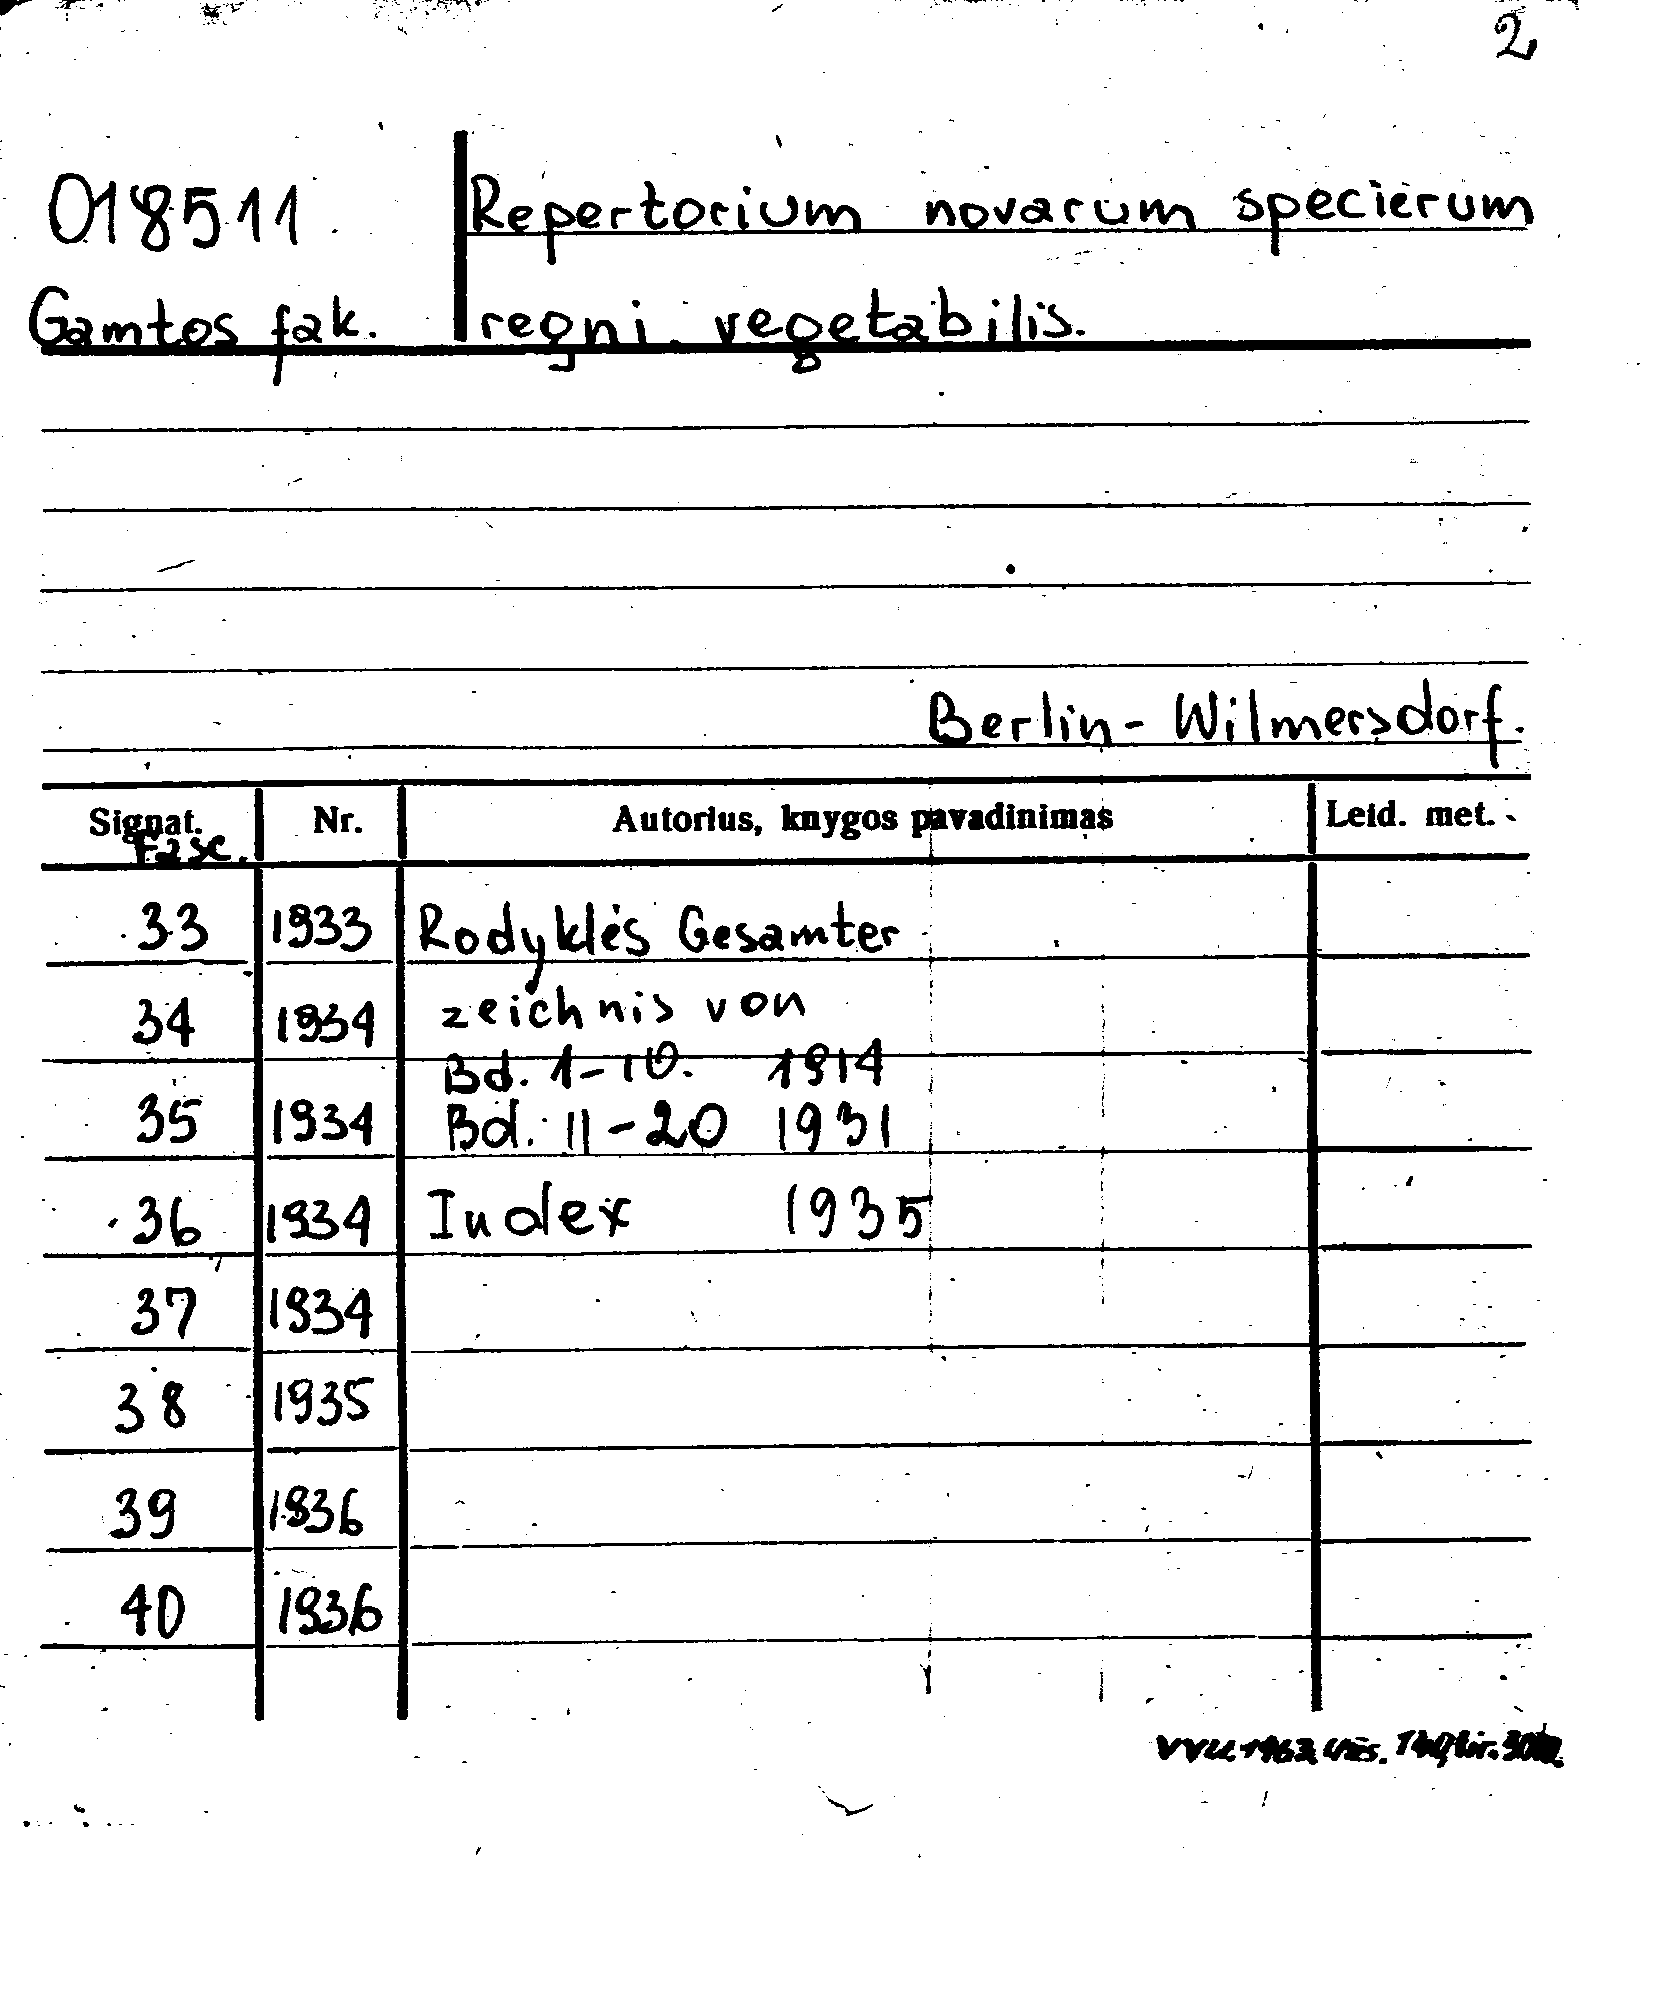 2
018511 Repertorium novarum specierum
Gamtos fak. regni vegetabilis.
Berlin - Wilmersdorf.
Signat. Nr. Autorius, knygos pavadinimas Leid. met.
Fasc.
33 1933 Rodyklės Gesamter
34 1934 zeichnis von
Bd. 1-10. 1914
35 1934 Bd. 11-20 1931
36 1934 Index 1935
37 1934
38 1935
39 1936
40 1936
VVU 1963 Užs.